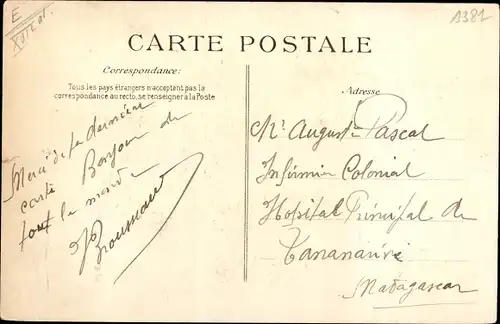 E
A381
CARTE POSTALE
Correspondance:
Tous les pays étrangers n'acceptent pas la
correspondance au recto, se renseigner à la Poste
Adresse
Merci de la dernière
carte Bonjour de
tout le monde
Mr Auguste Pascal
Infirmier Colonial
Hospital Principal de
Tananarive
Madagascar